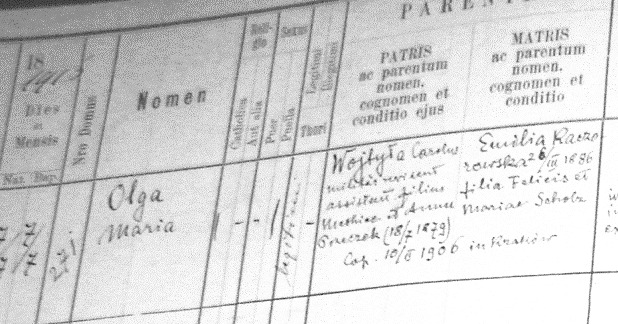 PARENT
18
1913
Dies
et
Mensis
Nat. Bap.
Nro Domus
Nomen
Religio
Catholica
Aut alia
Sexus
Puer
Puella
Thori
Legitimi
Illegitimi
PATRIS
ac parentum
nomen,
cognomen et
conditio ejus
MATRIS
ac parentum
nomen,
cognomen et
conditio
7/7
7/7
271
Olga
Maria
Wojtyła Carolus
militar
assistent filius
Mathiae et Annae
Przeczek (18/7 1879)
Cop. 10/II 1906 in Kraków
Emilia Kaczo
rowska 26/III 1886
filia Felicis et
Mariae Scholz